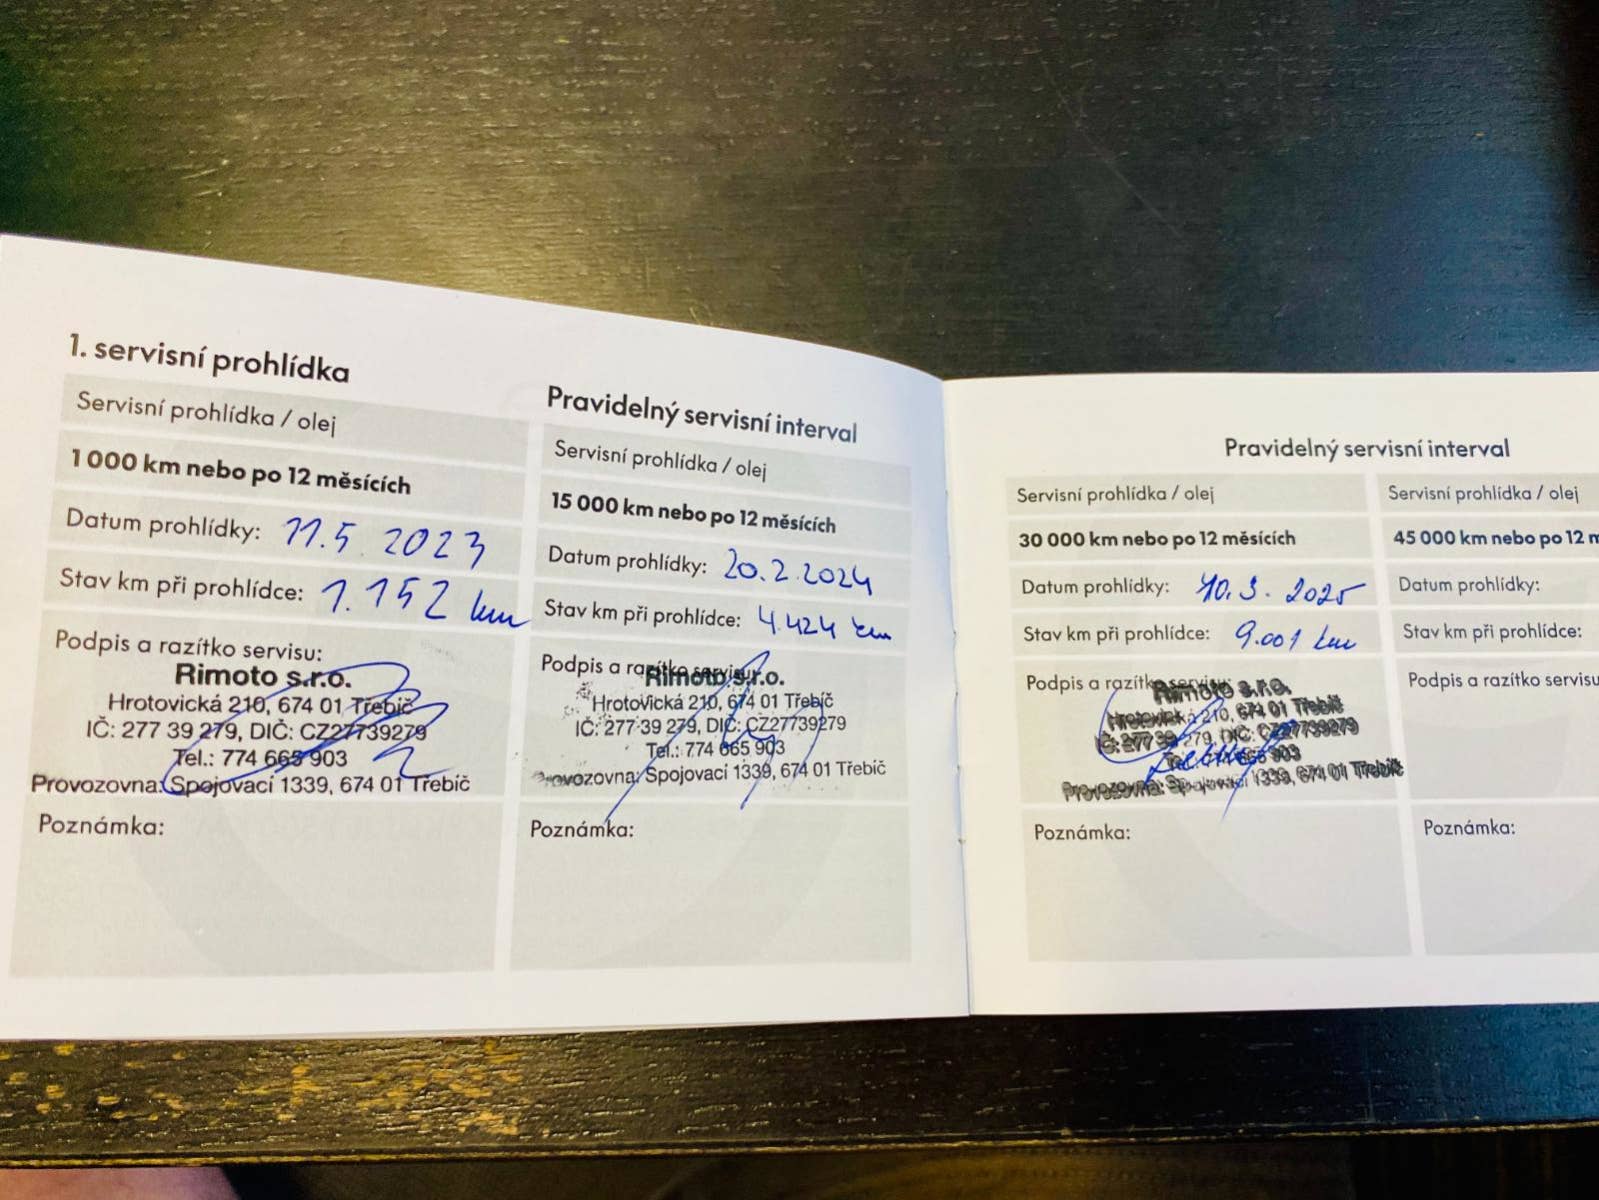 1. servisní prohlídka
Servisní prohlídka / olej
1 000 km nebo po 12 měsících
Datum prohlídky: 11.5.2023
Stav km při prohlídce: 1.152 km
Podpis a razítko servisu:
Rimoto s.r.o.
Hrotovická 210, 674 01 Třebíč
IČ: 277 39 279, DIČ: CZ27739279
Tel.: 774 665 903
Provozovna: Spojovací 1339, 674 01 Třebíč
Poznámka:
Pravidelný servisní interval
Servisní prohlídka / olej
15 000 km nebo po 12 měsících
Datum prohlídky: 20.2.2024
Stav km při prohlídce: 4.424 km
Podpis a razítko servisu:
Rimoto s.r.o.
Hrotovická 210, 674 01 Třebíč
IČ: 277 39 279, DIČ: CZ27739279
Tel.: 774 665 903
Provozovna: Spojovací 1339, 674 01 Třebíč
Poznámka:
Pravidelný servisní interval
Servisní prohlídka / olej
30 000 km nebo po 12 měsících
Datum prohlídky: 10.3.2025
Stav km při prohlídce: 9.001 km
Podpis a razítko servisu:
Rimoto s.r.o.
Hrotovická 210, 674 01 Třebíč
IČ: 277 39 279, DIČ: CZ27739279
Tel.: 774 665 903
Provozovna: Spojovací 1339, 674 01 Třebíč
Poznámka:
Servisní prohlídka / olej
45 000 km nebo po 12 m
Datum prohlídky:
Stav km při prohlídce:
Podpis a razítko servisu
Poznámka: